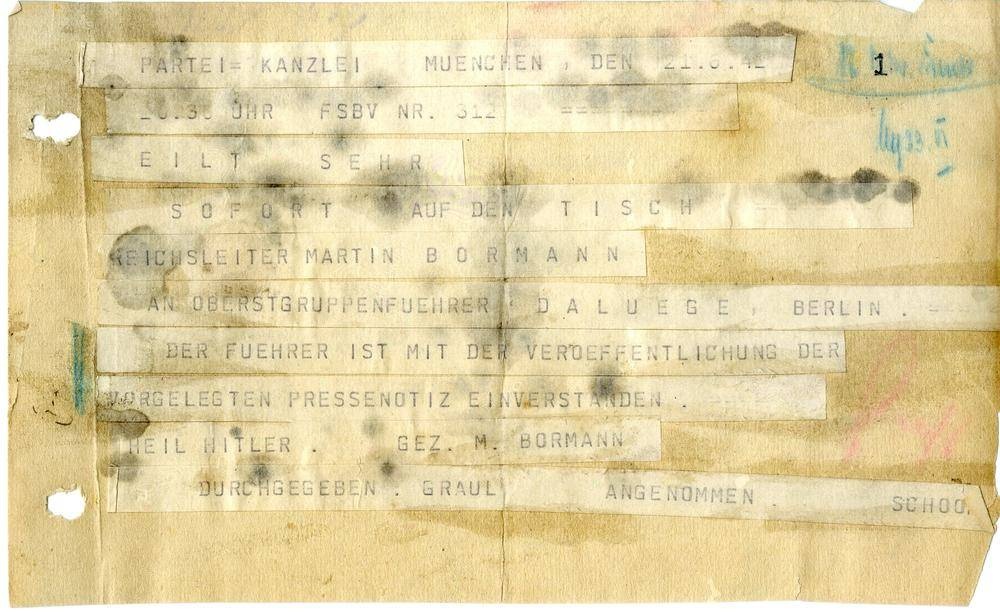 PARTEI= KANZLEI MUENCHEN , DEN 21.6.42
1
20.30 UHR FSBV NR. 312 ==
EILT SEHR
SOFORT AUF DEN TISCH
REICHSLEITER MARTIN BORMANN
AN OBERSTGRUPPENFUEHRER DALUEGE , BERLIN . =
DER FUEHRER IST MIT DER VEROEFFENTLICHUNG DER
VORGELEGTEN PRESSENOTIZ EINVERSTANDEN .
HEIL HITLER . GEZ. M. BORMANN
DURCHGEGEBEN . GRAUL ANGENOMMEN . SCHOO.